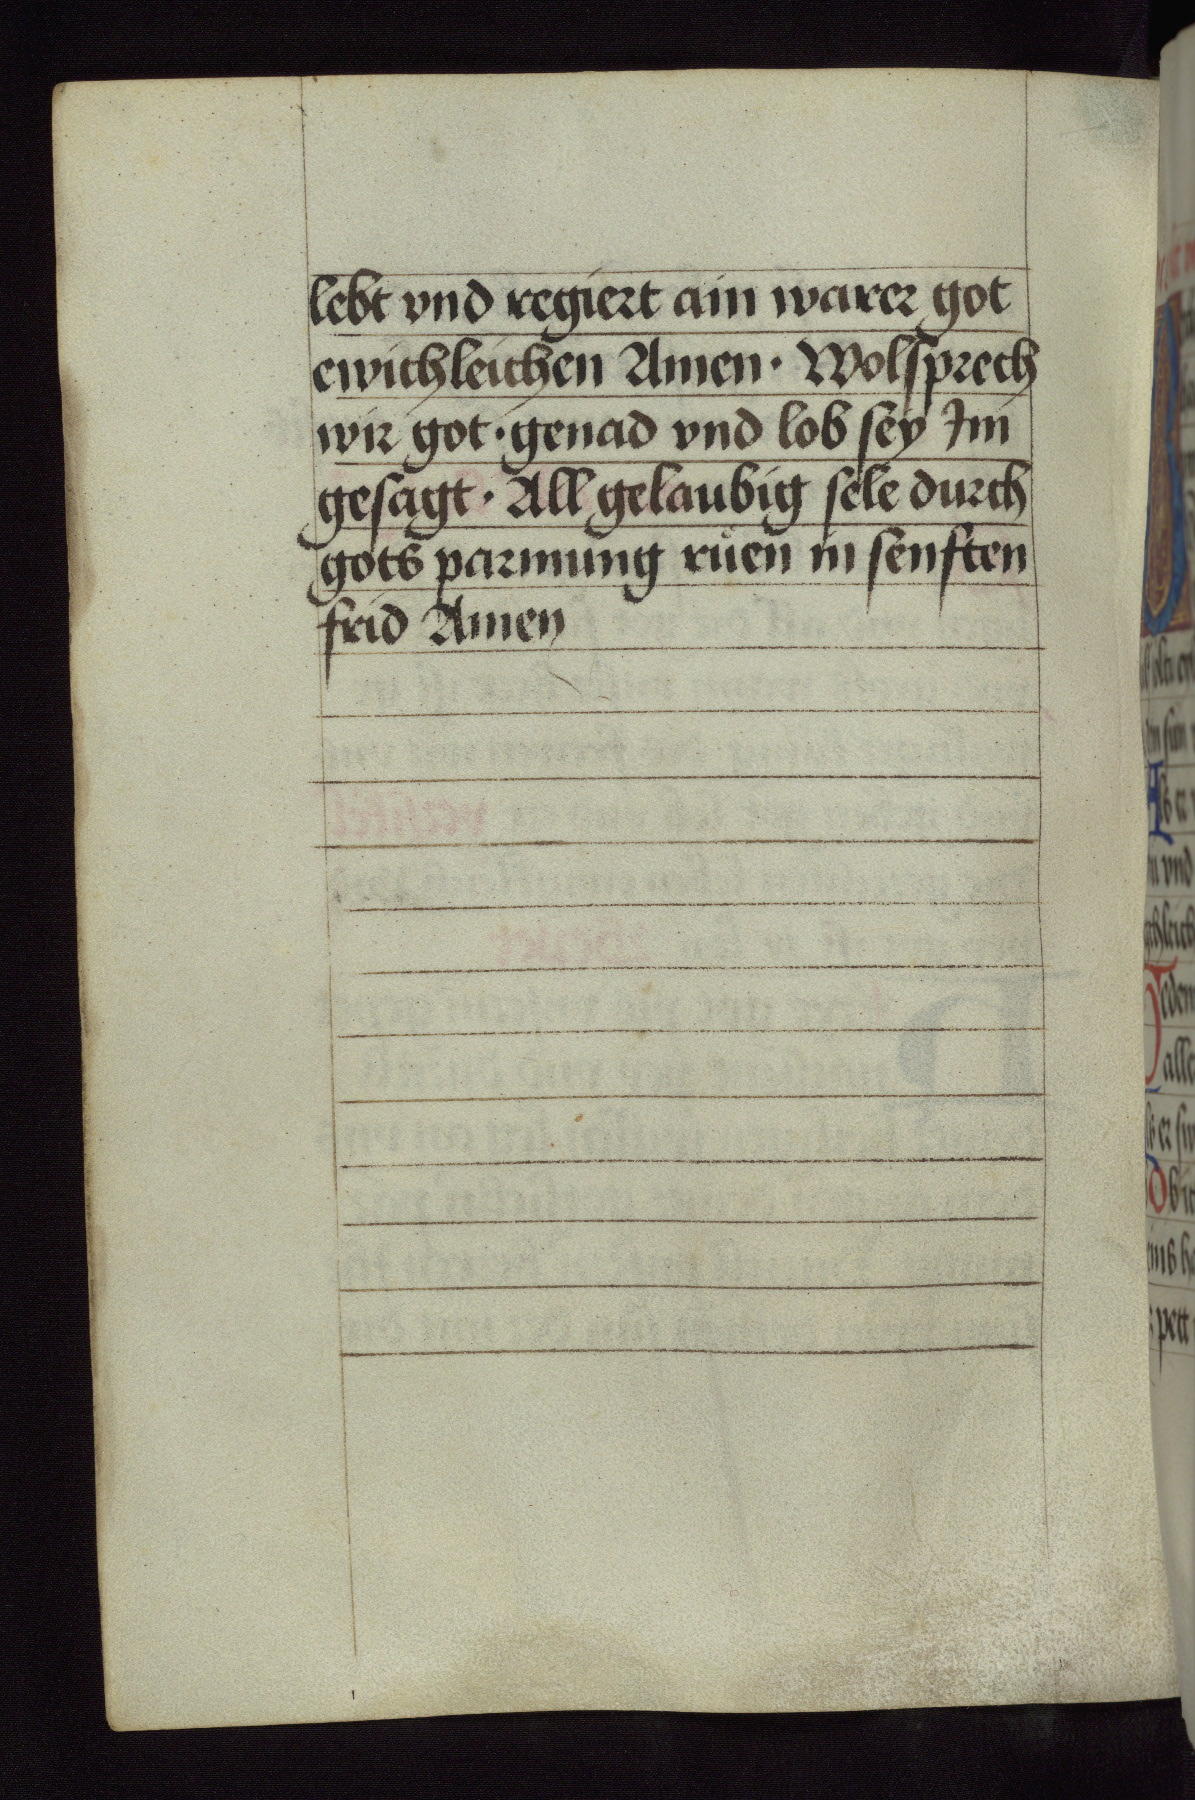 lebt vnd regiert ain warer got
ewichleichen Amen · Wolsprech
wir got · genad vnd lob sey Im
gesagt · All gelaubig sele durch
gots parmung ruͤen in senften
frid Amen